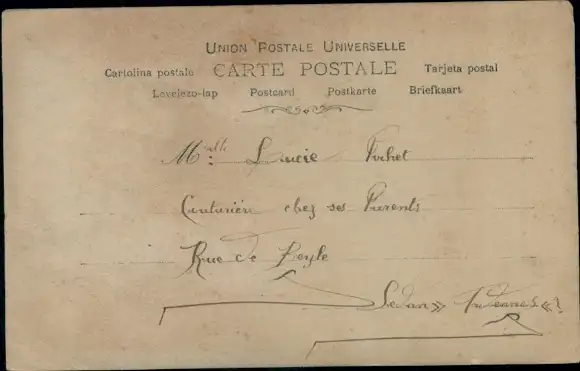 UNION POSTALE UNIVERSELLE
Cartolina postale CARTE POSTALE Tarjeta postal
Levelezo-lap Postcard Postkarte Briefkaart
Mlle: Lucie
Couturière chez ses Parents
Rue de Beyle
Sedan » Ardennes «